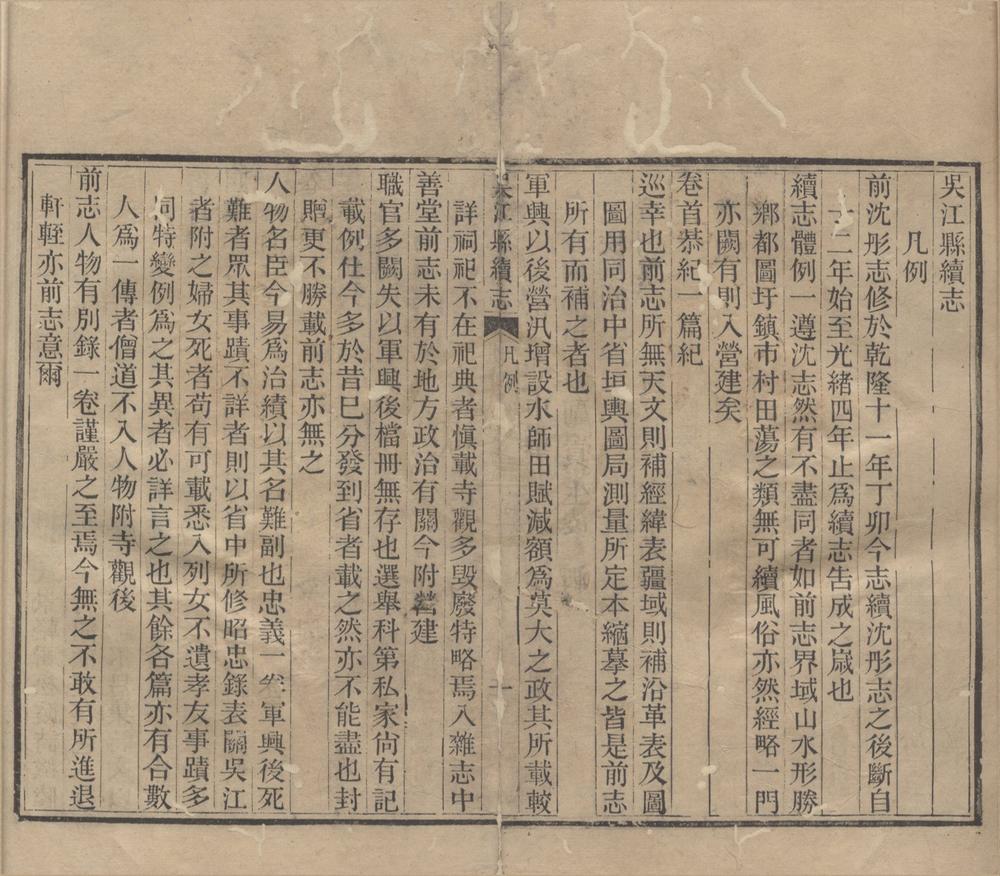 吳江縣續志
凡例
前沈彤志修於乾隆十一年丁卯今志續沈彤志之後斷自
十二年始至光緒四年止爲續志告成之歲也
續志體例一遵沈志然有不盡同者如前志界域山水形勝
鄉都圖圩鎮市村田蕩之類無可續風俗亦然經略一門
亦闕有則入營建矣
卷首恭紀一篇紀
巡幸也前志所無天文則補經緯表疆域則補沿革表及圖
圖用同治中省垣輿圖局測量所定本縮摹之皆是前志
所有而補之者也
軍興以後營汛增設水師田賦減額爲莫大之政其所載較
吳江縣續志
凡例
一
詳祠祀不在祀典者愼載寺觀多毀廢特略焉入雜志中
善堂前志未有於地方政治有關今附營建
職官多闕失以軍興後檔冊無存也選舉科第私家尙有記
載例仕今多於昔巳分發到省者載之然亦不能盡也封
贈更不勝載前志亦無之
人物名臣今易爲治績以其名難副也忠義一卷軍興後死
難者眾其事蹟不詳者則以省中所修昭忠錄表關吳江
者附之婦女死者苟有可載悉入列女不遺孝友事蹟多
同特變例爲之其異者必詳言之也其餘各篇亦有合數
人爲一傳者僧道不入人物附寺觀後
前志人物有別錄一卷謹嚴之至焉今無之不敢有所進退
軒輊亦前志意爾